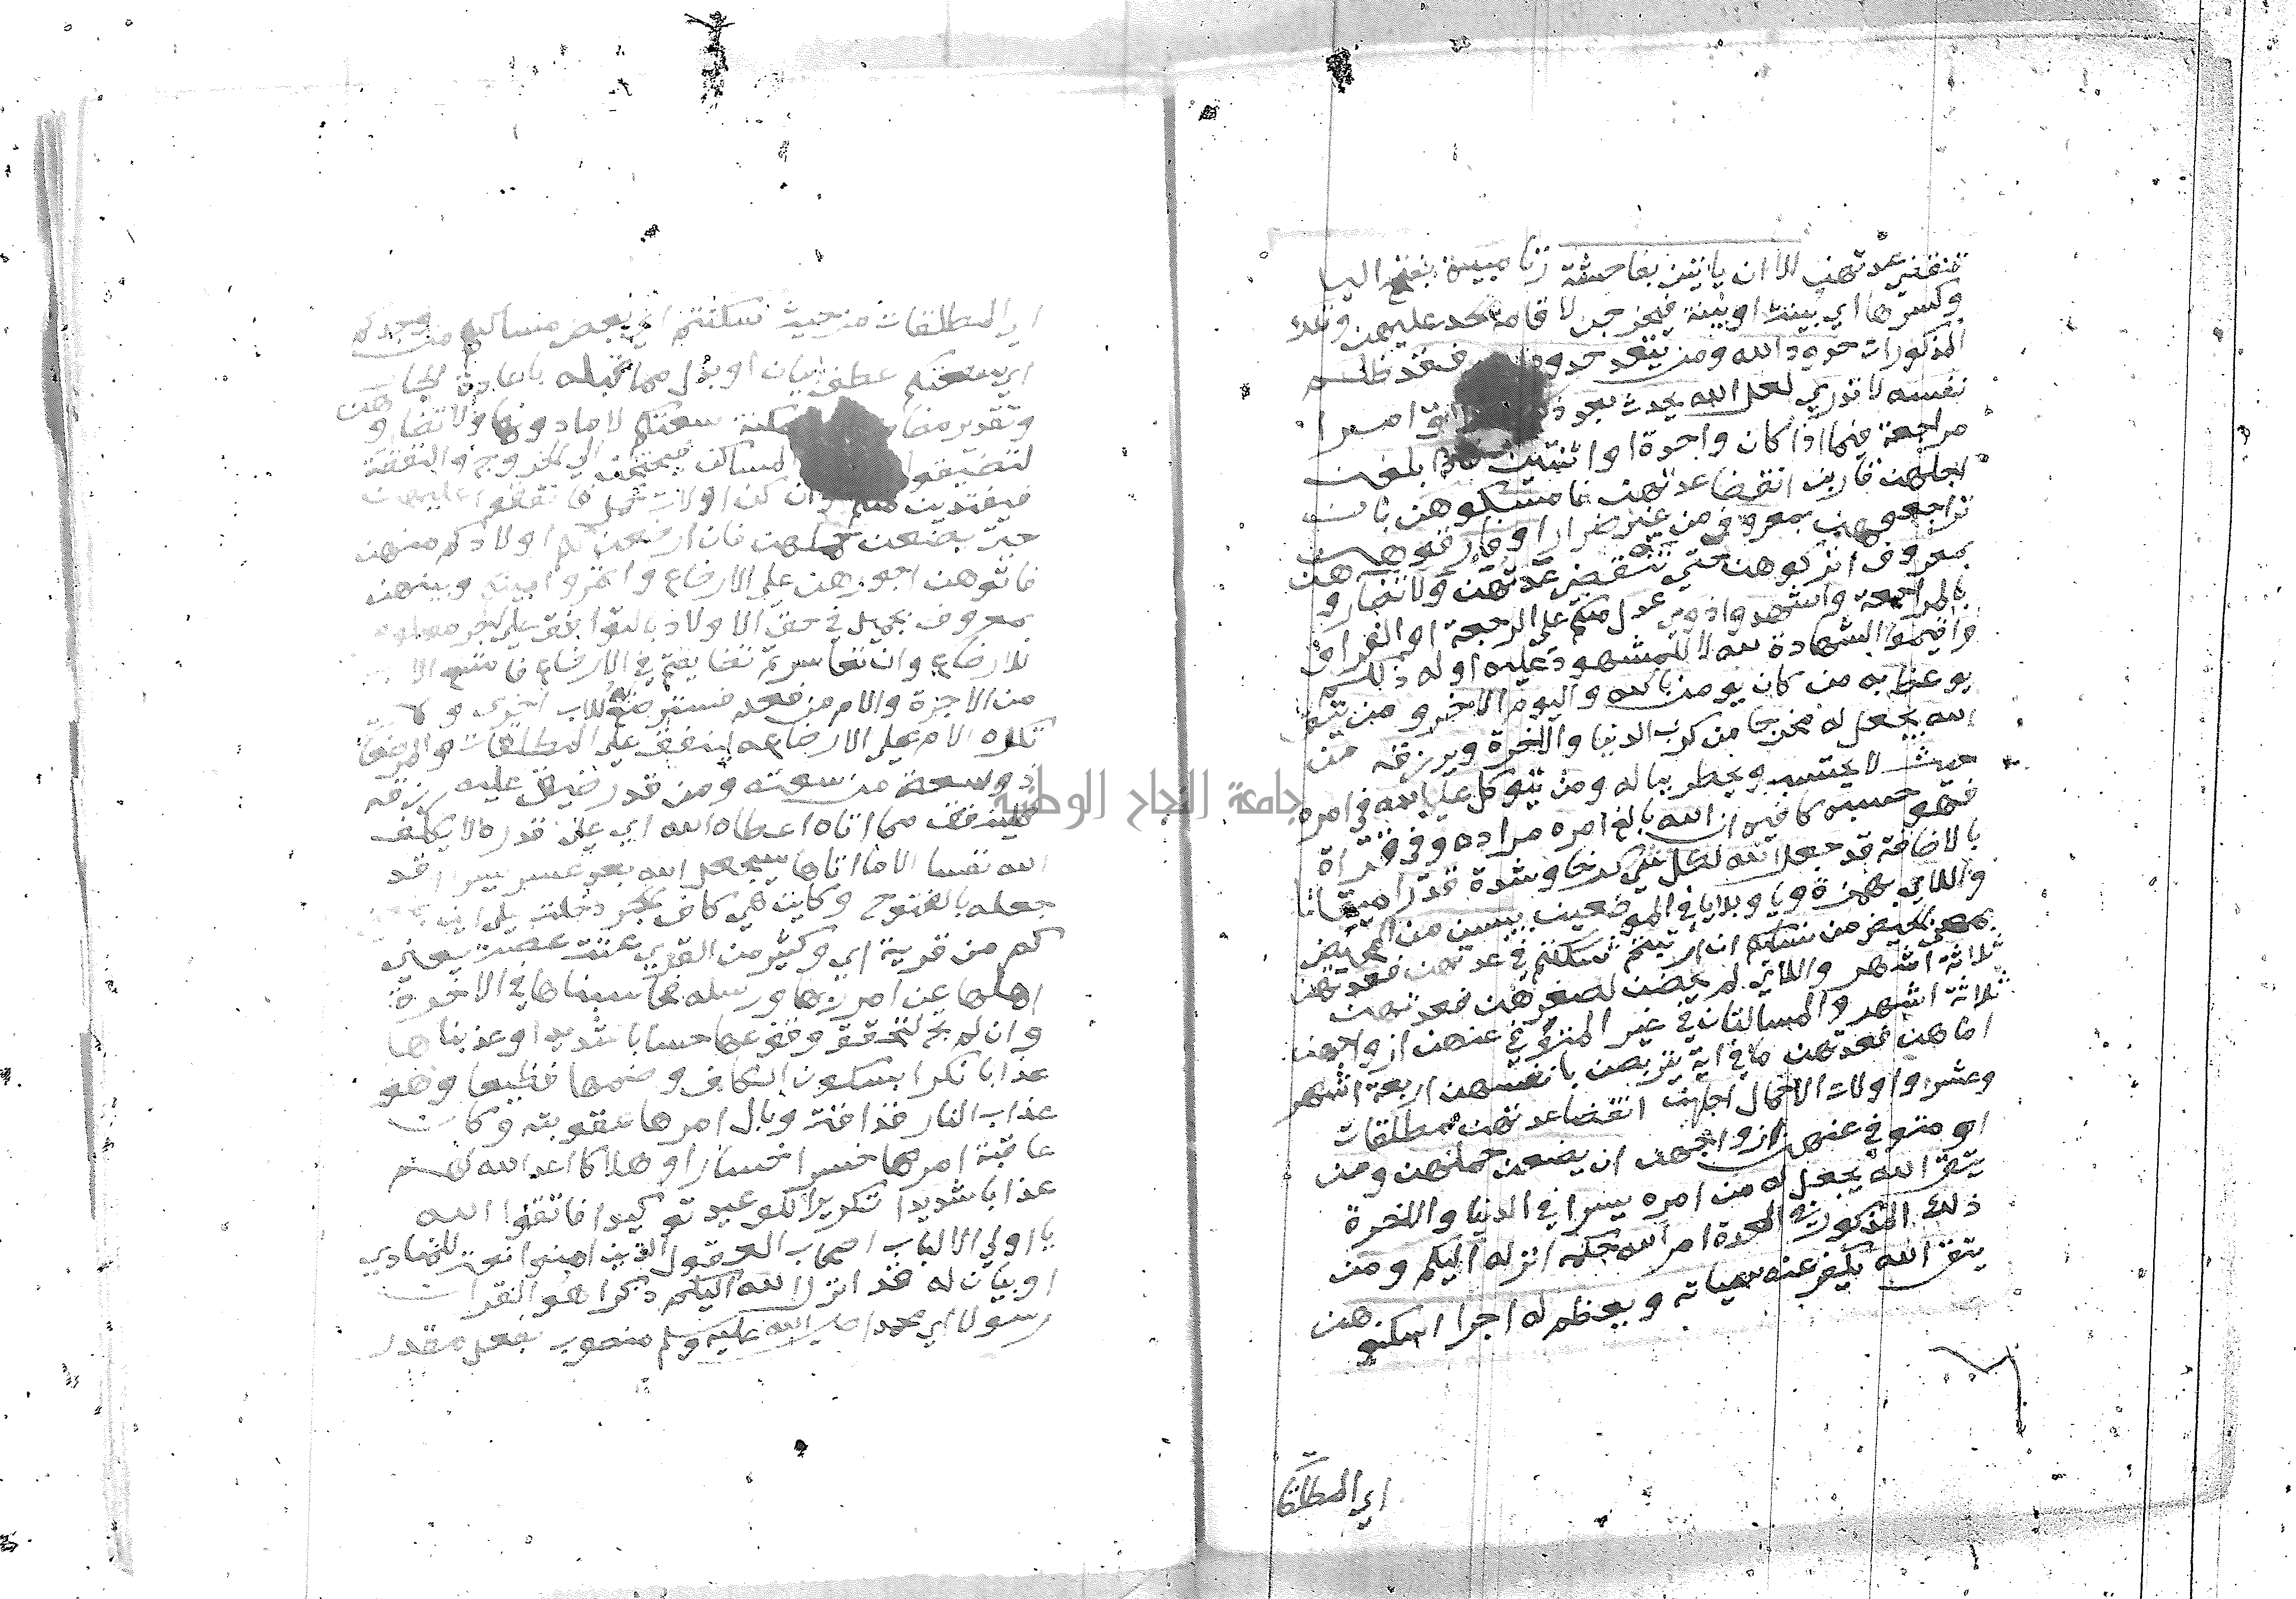 تنقضي عدتهن الا ان ياتين بفاحشة زنا مبينة بفتح اليا
وكسرها اي بينت او بينة فيخرجن لاقامة الحد عليهن وتلك
المذكورات حدود الله ومن يتعد حدود فقد ظلم
نفسه لا تدري لعل الله يحدث بعد ذ امرا
مراجعة فيما اذا كان واحدة او اثنتين فاذا بلغن
اجلهن قاربن انقضا عدتهن فامسكوهن بان
تراجعوهن بمعروف من غير ضرار او فارقوهن
بمعروف اتركوهن حتي تنقضي عدتهن ولا تضاروهن
بالمراجعة واشهدوا ذوي عدل منكم علي الرجعة او الفراق
واقيموا الشهادة لله لا للمشهود عليه او له ذلكم
يوعظ به من كان يومن بالله واليوم الاخر ومن يتق
الله يجعل له مخرجا من كرب الدنيا والاخرة ويرزقه من
حيث لا يحتسب يخطر بباله ومن يتوكل علي الله في امره
فهو حسبه كافيه ان الله بالغ امره مراده وفي قراة
بالاضافة قد جعل الله لكل شي كرخا وشدة قدرا ميقاتا
واللاي بهمزة ويا وبلا يا في الموضعين ييسن من المحيض
بمعني الحيض من نسايكم ان ارتبتم شككتم في عدتهن فعدتهن
ثلاثة اشهر واللاي لم يحضن لصغرهن فعدتهن
ثلاثة اشهر والمسالتان في غير المتوفي عنهن ازواجهن
اما هن فعدتهن ما في اية يتربصن بانفسهن اربعة اشهر
وعشرا واولات الاحمال اجلهن انقضا عدتهن مطلقات
او متوفي عنهن ازواجهن ان يضعن حملهن ومن
يتق الله يجعل له من امره يسرا في الدنيا والاخرة
ذلك المذكور في العدة امر الله حكمه انزله اليكم ومن
يتق الله يكفر عنه سياته ويعظم له اجرا اسكنوهن
اي المطلقا
اي المطلقات من حيث سكنتم اي بعض مساكنكم من وجدكم
اي سعتكم عطف بيان او بدل مما قبله باعادة الجار
وتقدير مضا سعتكم لا ما دونها ولا تضاروهن
لتضيقوا المساكن فيحتجن الي الخروج والنفقة
فيفتدين منكم وان كن اولات حمل فانفقوا عليهن
حتي يضعن حملهن فان ارضعن لكم اولادكم منهن
فاتوهن اجورهن علي الارضاع واتمروا بينكم وبينهن
بمعروف بجميل في حق الاولاد بالتوافق علي اجر معلوم
للارضاع وان تعاسرتم تضايقتم في الارضاع فامتنع الا
من الاجرة والام من فعله فسترضع له للاب اخري ولا
تكره الام علي الارضاعه لينفق علي المطلقات والمرضعات
ذو سعة من سعته ومن قدر ضيق عليه رزقه
فلينفق مما اتاه اعطاه الله اي علي قدره لا يكلف
الله نفسا الا ما اتاها سيجعل الله بعد عسر يسرا قد
جعله بالفتوح وكاين هي كاف الجر دخلت علي اي بمعني
كم من قرية اي وكثير من القري عتت عصت يعني
اهلها عن امر ربها ورسله فحاسبناها في الاخرة
وان لم تجي لتحقق وقوعها حسابا شديدا وعذبناها
عذابا نكرا بسكون الكاف وضمها فظيعا وهو
عذاب النار فذاقت وبال امرها عقوبته وكان
عاقبة امرها خسرا خسارا وهلاكا اعد الله لهم
عذابا شديدا تكرير الوعيد توكيدا فاتقوا الله
يا اولي الالباب اصحاب العقول الذين امنوا نعت للمنادي
او بيان له قد انزل الله اليكم ذكرا هو القران
رسولا اي محمدا صلي الله عليه وسلم منصوب بفعل مقدر
جامعة النجاح الوطنية